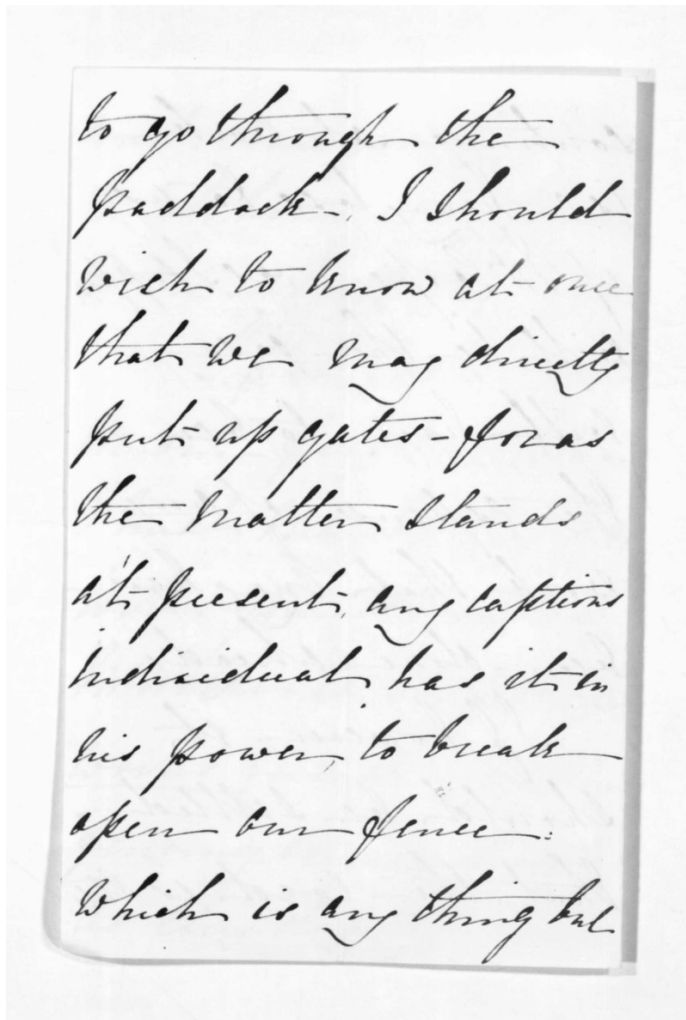 to go through the
paddock -. I should
wish to know at once
that we may directly
put up gates - for as
the matter stands
at present, any captious
individual, has it in
his power, to break
open our fence.
Which is any thing but